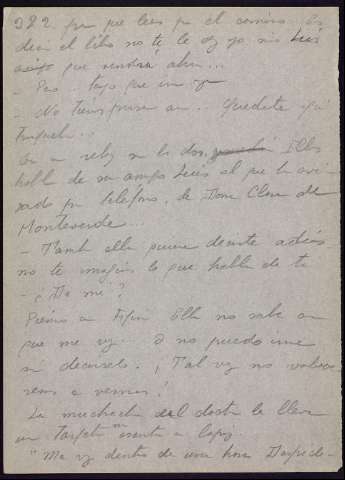 322. para que leas por el camino. Es
decir el libro no te le doy yo sino Luis
que vendrá ahora...
- Pero.. tengo que irme ya
- No tienes prisa aun.. Quedate
tranquila..
En un reloj son las dos. Ella
habla de su amigo Luis al que ha avi-
sado por teléfono, de Dona Clara de
Monteverde...
- Tambien ella quiere decirte adios
no te imaginas lo que habla de ti
- ¿De mi?
Piensa en Ella no sabe aun
que me voy.. y no puedo irme
sin decirselo. ¡Tal vez no volva-
remos a vernos!
La muchacha del doctor le lleva
un tarjetón escrito a lapiz.
"Me voy dentro de una hora Despide-